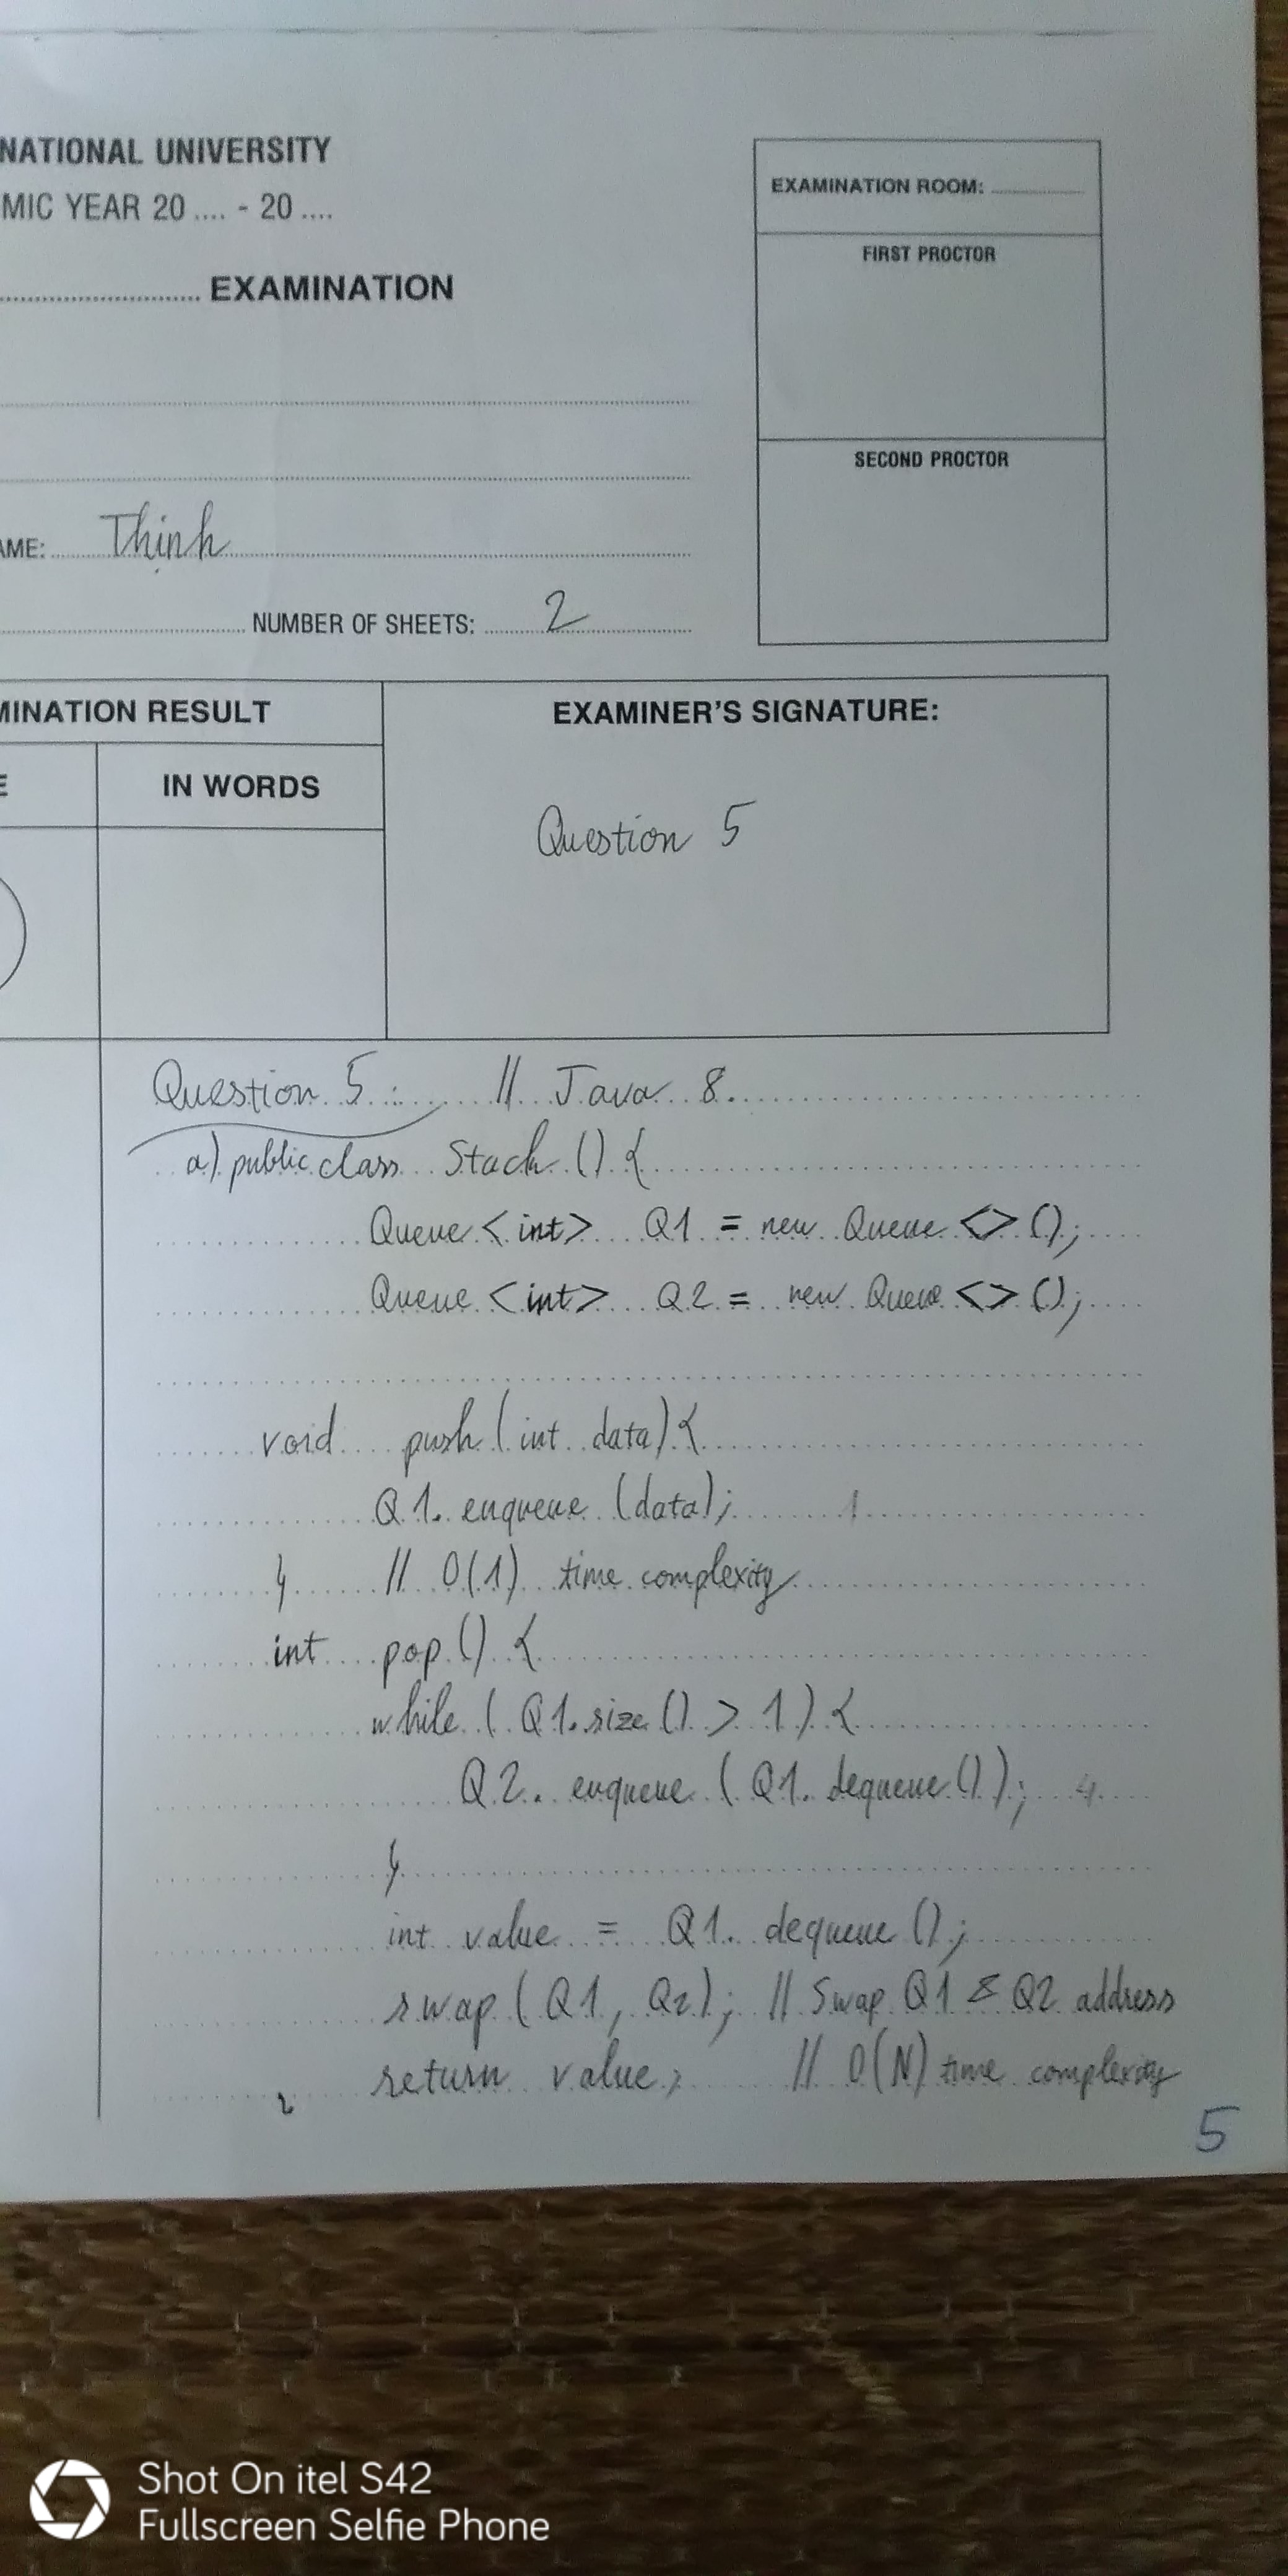 NATIONAL UNIVERSITY
MIC YEAR 20 .... - 20 ....
EXAMINATION
EXAMINATION ROOM:
FIRST PROCTOR
SECOND PROCTOR
AME: Thịnh
NUMBER OF SHEETS: 2
MINATION RESULT
EXAMINER'S SIGNATURE:
E
IN WORDS
Question 5
Question 5: // Java 8.
a) public class Stack () {
Queue <int> Q1 = new Queue <> ();
Queue <int> Q2 = new Queue <> ();
void push (int data) {
Q1. enqueue (data); 1
} // O(1) time complexity
int pop () {
while (Q1.size () > 1) {
Q2. enqueue (Q1. dequeue ()); 4
}
int value = Q1. dequeue ();
swap (Q1, Q2); // Swap Q1 & Q2 address
return value; // O(N) time complexity
}
5
Shot On itel S42
Fullscreen Selfie Phone